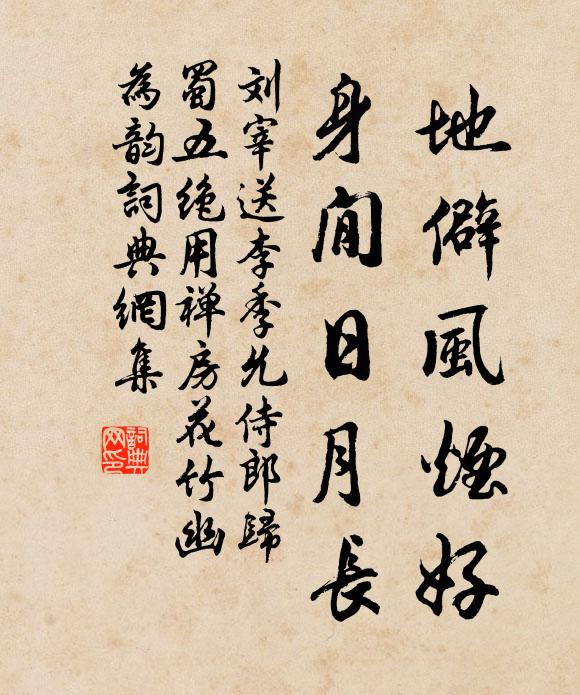 地僻風煙好
身閒日月長
刘宰送李季允侍郎歸
蜀五绝用禅房花竹幽
為韵詞典網集
詞典
网印